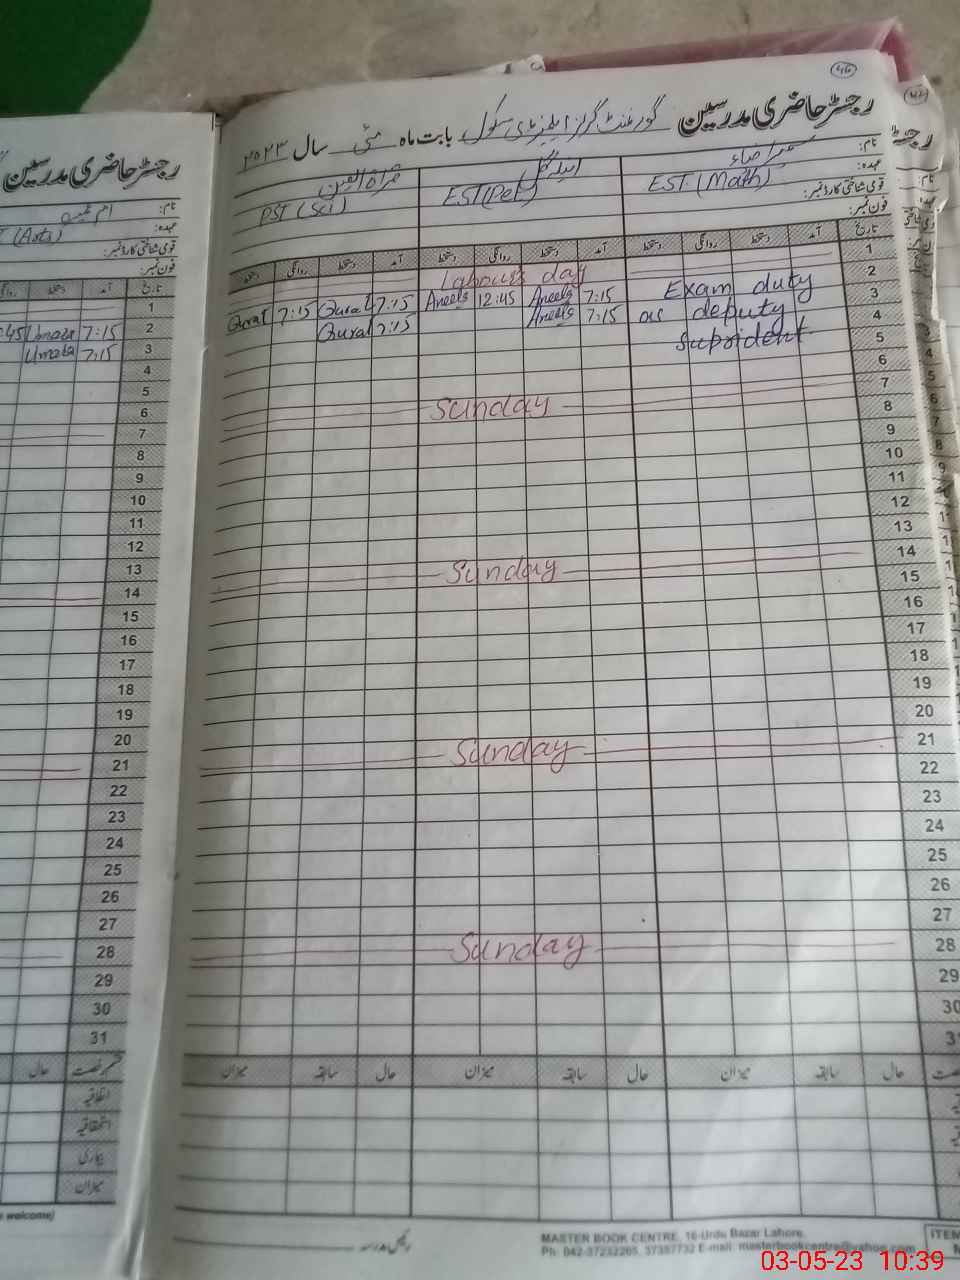 رجسٹر حاضری مدرسین گورنمنٹ گرلز ایلیمنٹری سکول بابت ماہ مئی سال ۲۰۲۳
46
نام: سمیرا ضاء
قرۃ العین
عہدہ: EST (Math)
EST (PET)
PST (Sci)
قومی شناختی کارڈ نمبر:
فون نمبر:
تاریخ آمد دستخط روانگی دستخط آمد دستخط روانگی دستخط آمد دستخط روانگی دستخط
1 Labours day
2 Exam duty
Qurat 7:15 Qurat 7:15 Aneela 12:45 Aneela 7:15
3 as deputy
Qurat 7:15 Aneela 7:15
4 Suprident
5
6
7 Sunday
8
9
10
11
12
13
14 Sunday
15
16
17
18
19
20
21 Sunday
22
23
24
25
26
27
28 Sunday
29
30
31
حال سابقہ میزان حال سابقہ میزان حال سابقہ میزان
رئیس مدرسہ
MASTER BOOK CENTRE, 16-Urdu Bazar Lahore.
Ph: 042-37232265, 37357732 E-mail: masterbookcentre@yahoo.com
ITEM
رجسٹر حاضری مدرسین
نام:
عہدہ: (Arts)
قومی شناختی کارڈ نمبر:
فون نمبر:
تاریخ آمد دستخط
1
2 7:15 Umata 45
3 7:15 Umata
4
5
6
7
8
9
10
11
12
13
14
15
16
17
18
19
20
21
22
23
24
25
26
27
28
29
30
31
قسم رخصت حال
اتفاقیہ
استحقاقیہ
بیماری
میزان
welcome)
03-05-23 10:39